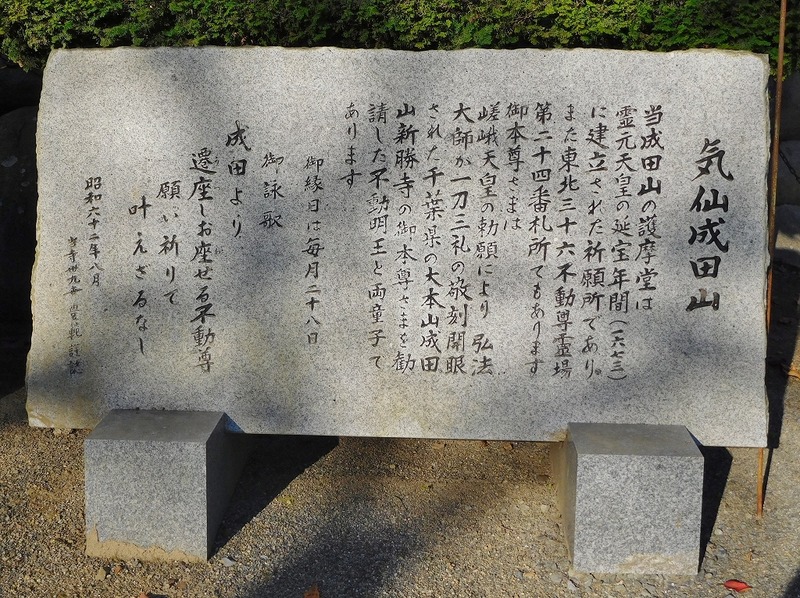 気仙成田山
当成田山の護摩堂は
霊元天皇の延宝年間(一六七三)
に建立された祈願所であり。
また東北三十六不動尊霊場
第二十四番札所でもあります
御本尊さまは
嵯峨天皇の勅願により 弘法
大師が一刀三礼の敬刻開眼
された千葉県の大本山成田
山新勝寺の御本尊さまを勧
請した不動明王と両童子で
あります
御縁日は毎月二十八日
御詠歌
成田より
遷座しお座せる不動尊
願い祈りて
叶えざるなし
昭和六十二年八月